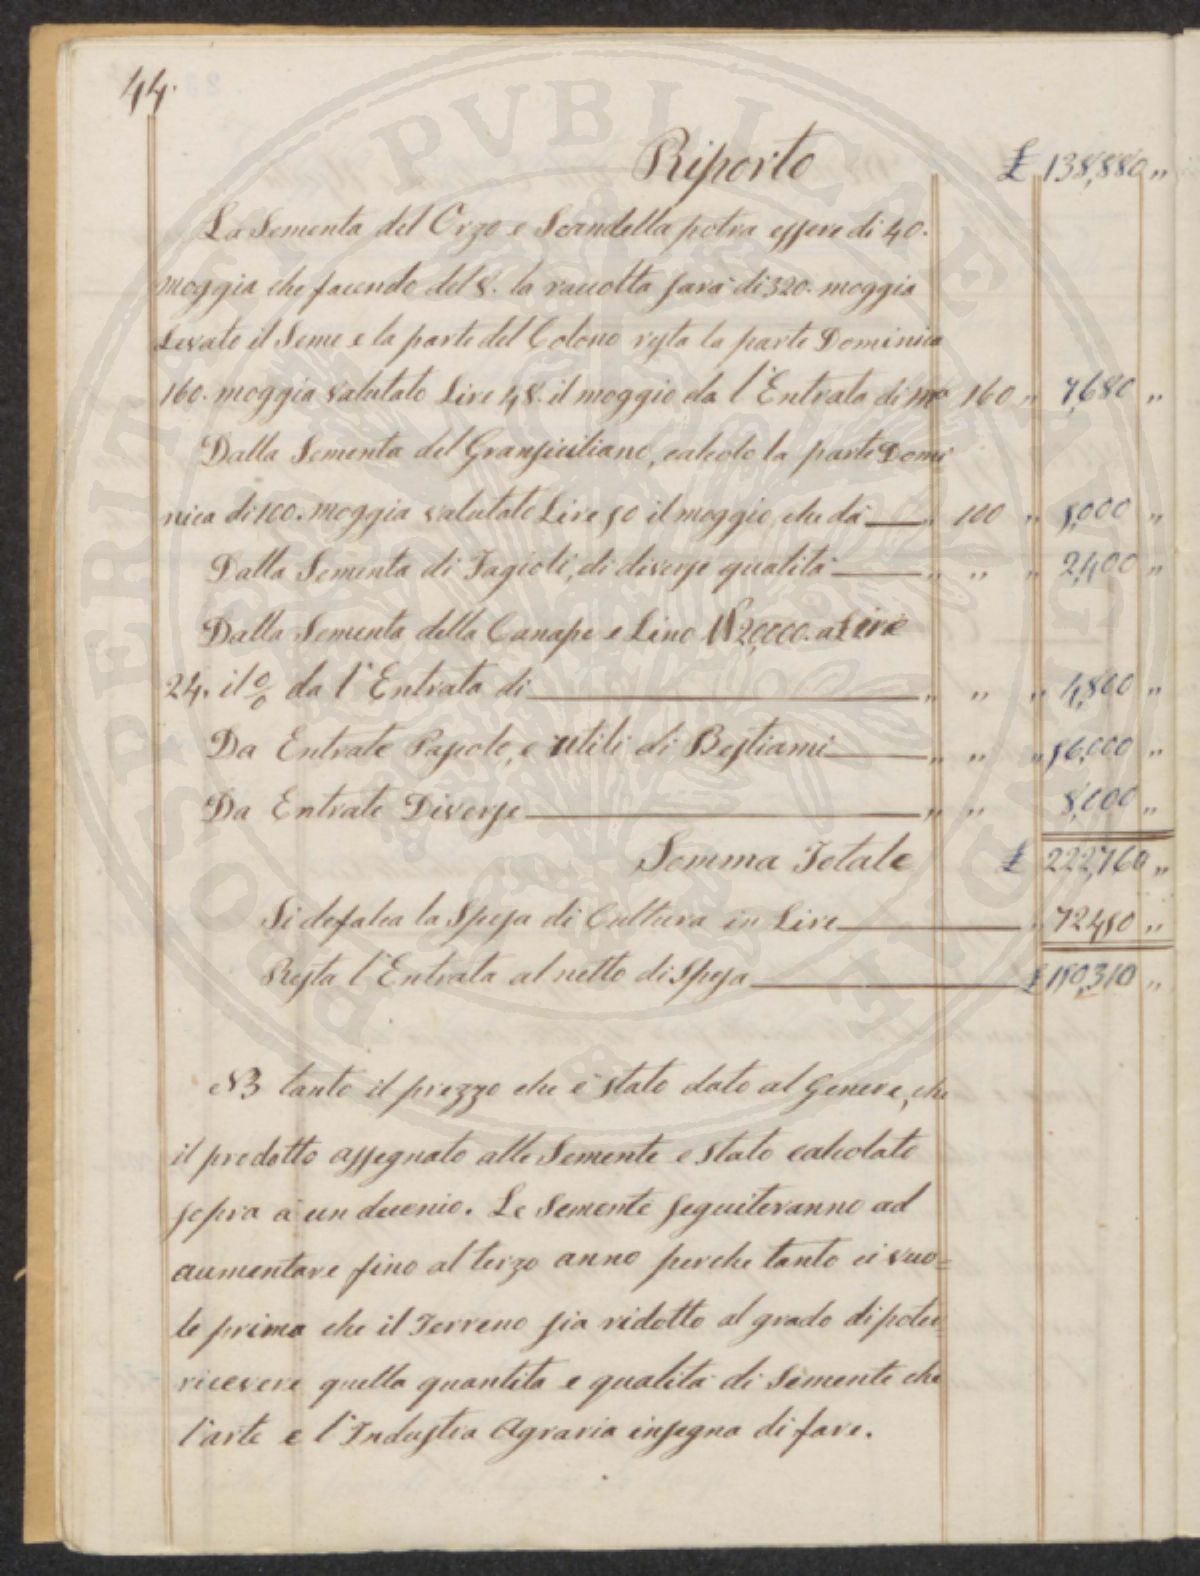 44.
Riporto £ 138,880 „
La Sementa del Orzo e Scandella potra essere di 40.
moggia che facendo del 8. la raccolta sarà di 320. moggia
Levato il Seme e la parte del Colono resta la parte Dominica
160. moggia valutato Lire 48. il moggio da l'Entrata di mo 160 „ 7,680 „
Dalla Sementa del Gransiciliano, calcolo la parte Domi
nica di 100. moggia valutato Lire 50 il moggio, che dà „ 100 „ 5,000 „
Dalla Sementa di Fagioli, di diverse qualità „ „ „ 2,400 „
Dalla Sementa della Canape e Lino lb 20,000. a Lire
24. il % da l'Entrata di „ „ „ 4,800 „
Da Entrate Pascolo, e utili di Bestiami „ „ „ 56,000 „
Da Entrate Diverse „ „ 8,000 „
Somma Totale £ 222,760 „
Si defalca la Spesa di Cultura in Lire „ 72450 „
Resta l'Entrata al netto di Spesa £ 150,310 „
NB tanto il prezzo che è stato dato al Genere, che
il prodotto assegnato alle Semente e stato calcolato
sopra à un duenio. Le Semente seguiteranno ad
aumentare fino al terzo anno perche tanto ci vuo=
le prima che il Terreno sia ridotto al grado di poter
ricevere quella quantita e qualità di Semente che
l'arte e l'Industra Agraria insegna di fare.
PROSPERITATI PUBLICAE AUGENDAE